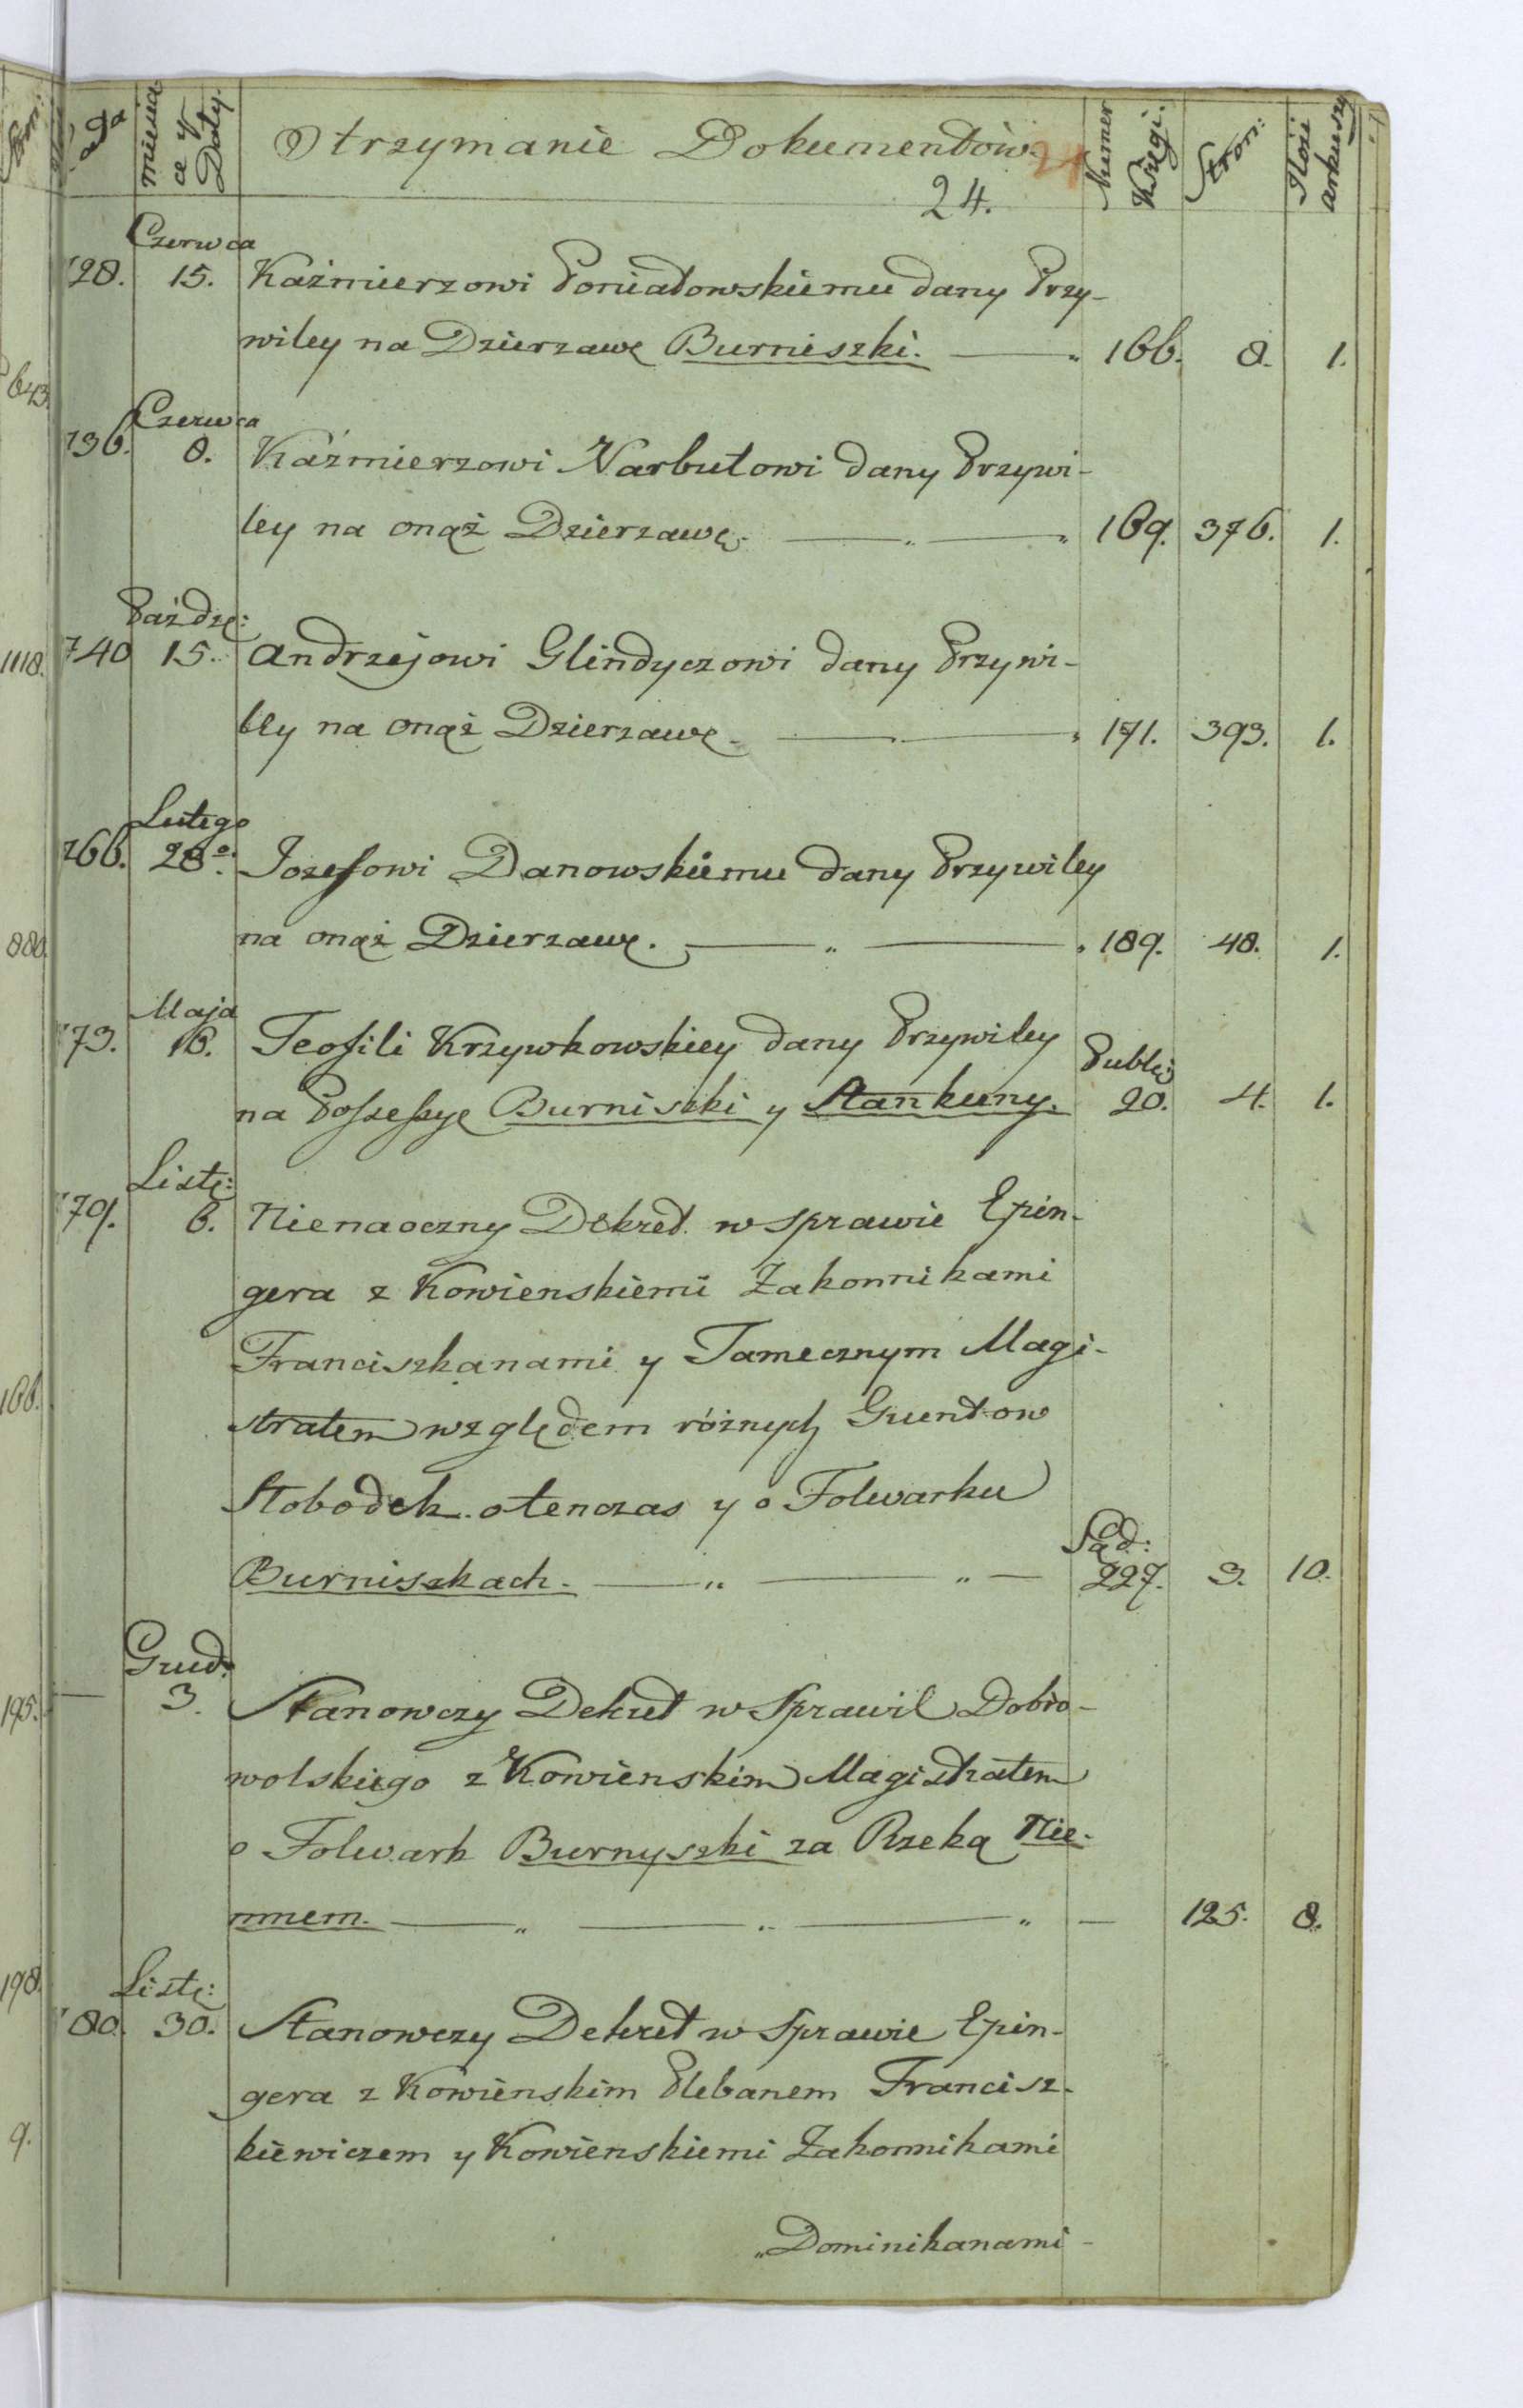 miesiąca y Daty.
Otrzymanie Dokumentów.
Numer Księgi.
Stron:
Ilość arkuszy
24.
Czerwca
728. 15. Kaźmierzowi Poniatowskiemu dany Przy-
wiley na Dzierzawę Burniszki. 166. 8. 1.
Czerwca
736. 8. Kaźmierzowi Narbutowi dany Przywi-
ley na onąż Dzierzawę. 169. 376. 1.
Paźdz:
740 15. Andrzejowi Glindyczowi dany Przywi-
ley na onąż Dzierzawę. 171. 393. 1.
Lutego
766. 28. Jozefowi Danowskiemu dany Przywiley
na onąż Dzierzawę. 189. 48. 1.
Maja
773. 16. Teofili Krzywkowskiey dany Przywiley
Publ:
na Possessyę Burniszki y Stankuny. 20. 4. 1.
Listę:
779. 6. Nienaoczny Dekret w sprawie Epin-
gera z Kowienskiemi Zakonnikami
Franciszkanami y Tamecznym Magi-
stratem względem róznych Gruntow
Słobodek otenczas y o Folwarku
Sąd:
Burniszkach. 227. 3. 10.
Grud:
3. Stanowczy Dekret w Sprawie Dobro-
wolskiego z Kowienskim Magistratem
o Folwark Burnyszki za Rzeką Nie-
mnem. 125. 8.
Listę:
780. 30. Stanowczy Dekret w Sprawie Epin-
gera z Kowienskim Plebanem Francisz-
kiewiczem y Kowienskiemi Zakonnikami
Dominikanami